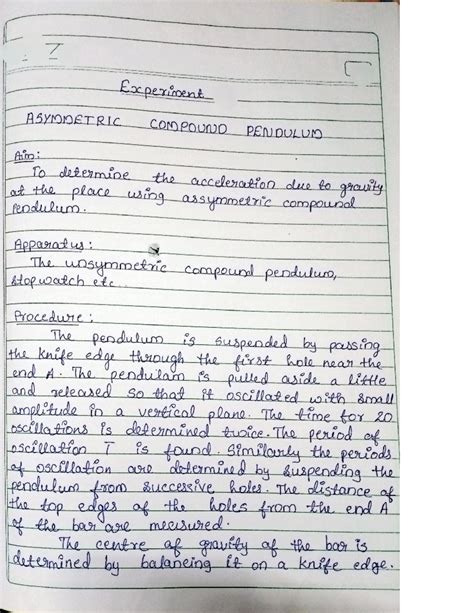 Experiment
ASYMMETRIC COMPOUND PENDULUM
Aim:
To determine the acceleration due to gravity
at the place using assymmetric compound
Pendulum.
Apparatus:
The unsymmetric compound pendulum,
stopwatch etc
Procedure:
The pendulum is suspended by passing
the knife edge through the first hole near the
end A. The pendulam is pulled aside a little
and released so that it oscillated with small
amplitude in a vertical plane. The time for 20
oscillations is determined twice. The period of
oscillation T is found. Similarly the periods
of oscillation are determined by suspending the
pendulum from successive holes. The distance of
the top edges of the holes from the end A
of the bar are measured.
The centre of gravity of the bar is
determined by balancing it on a knife edge.